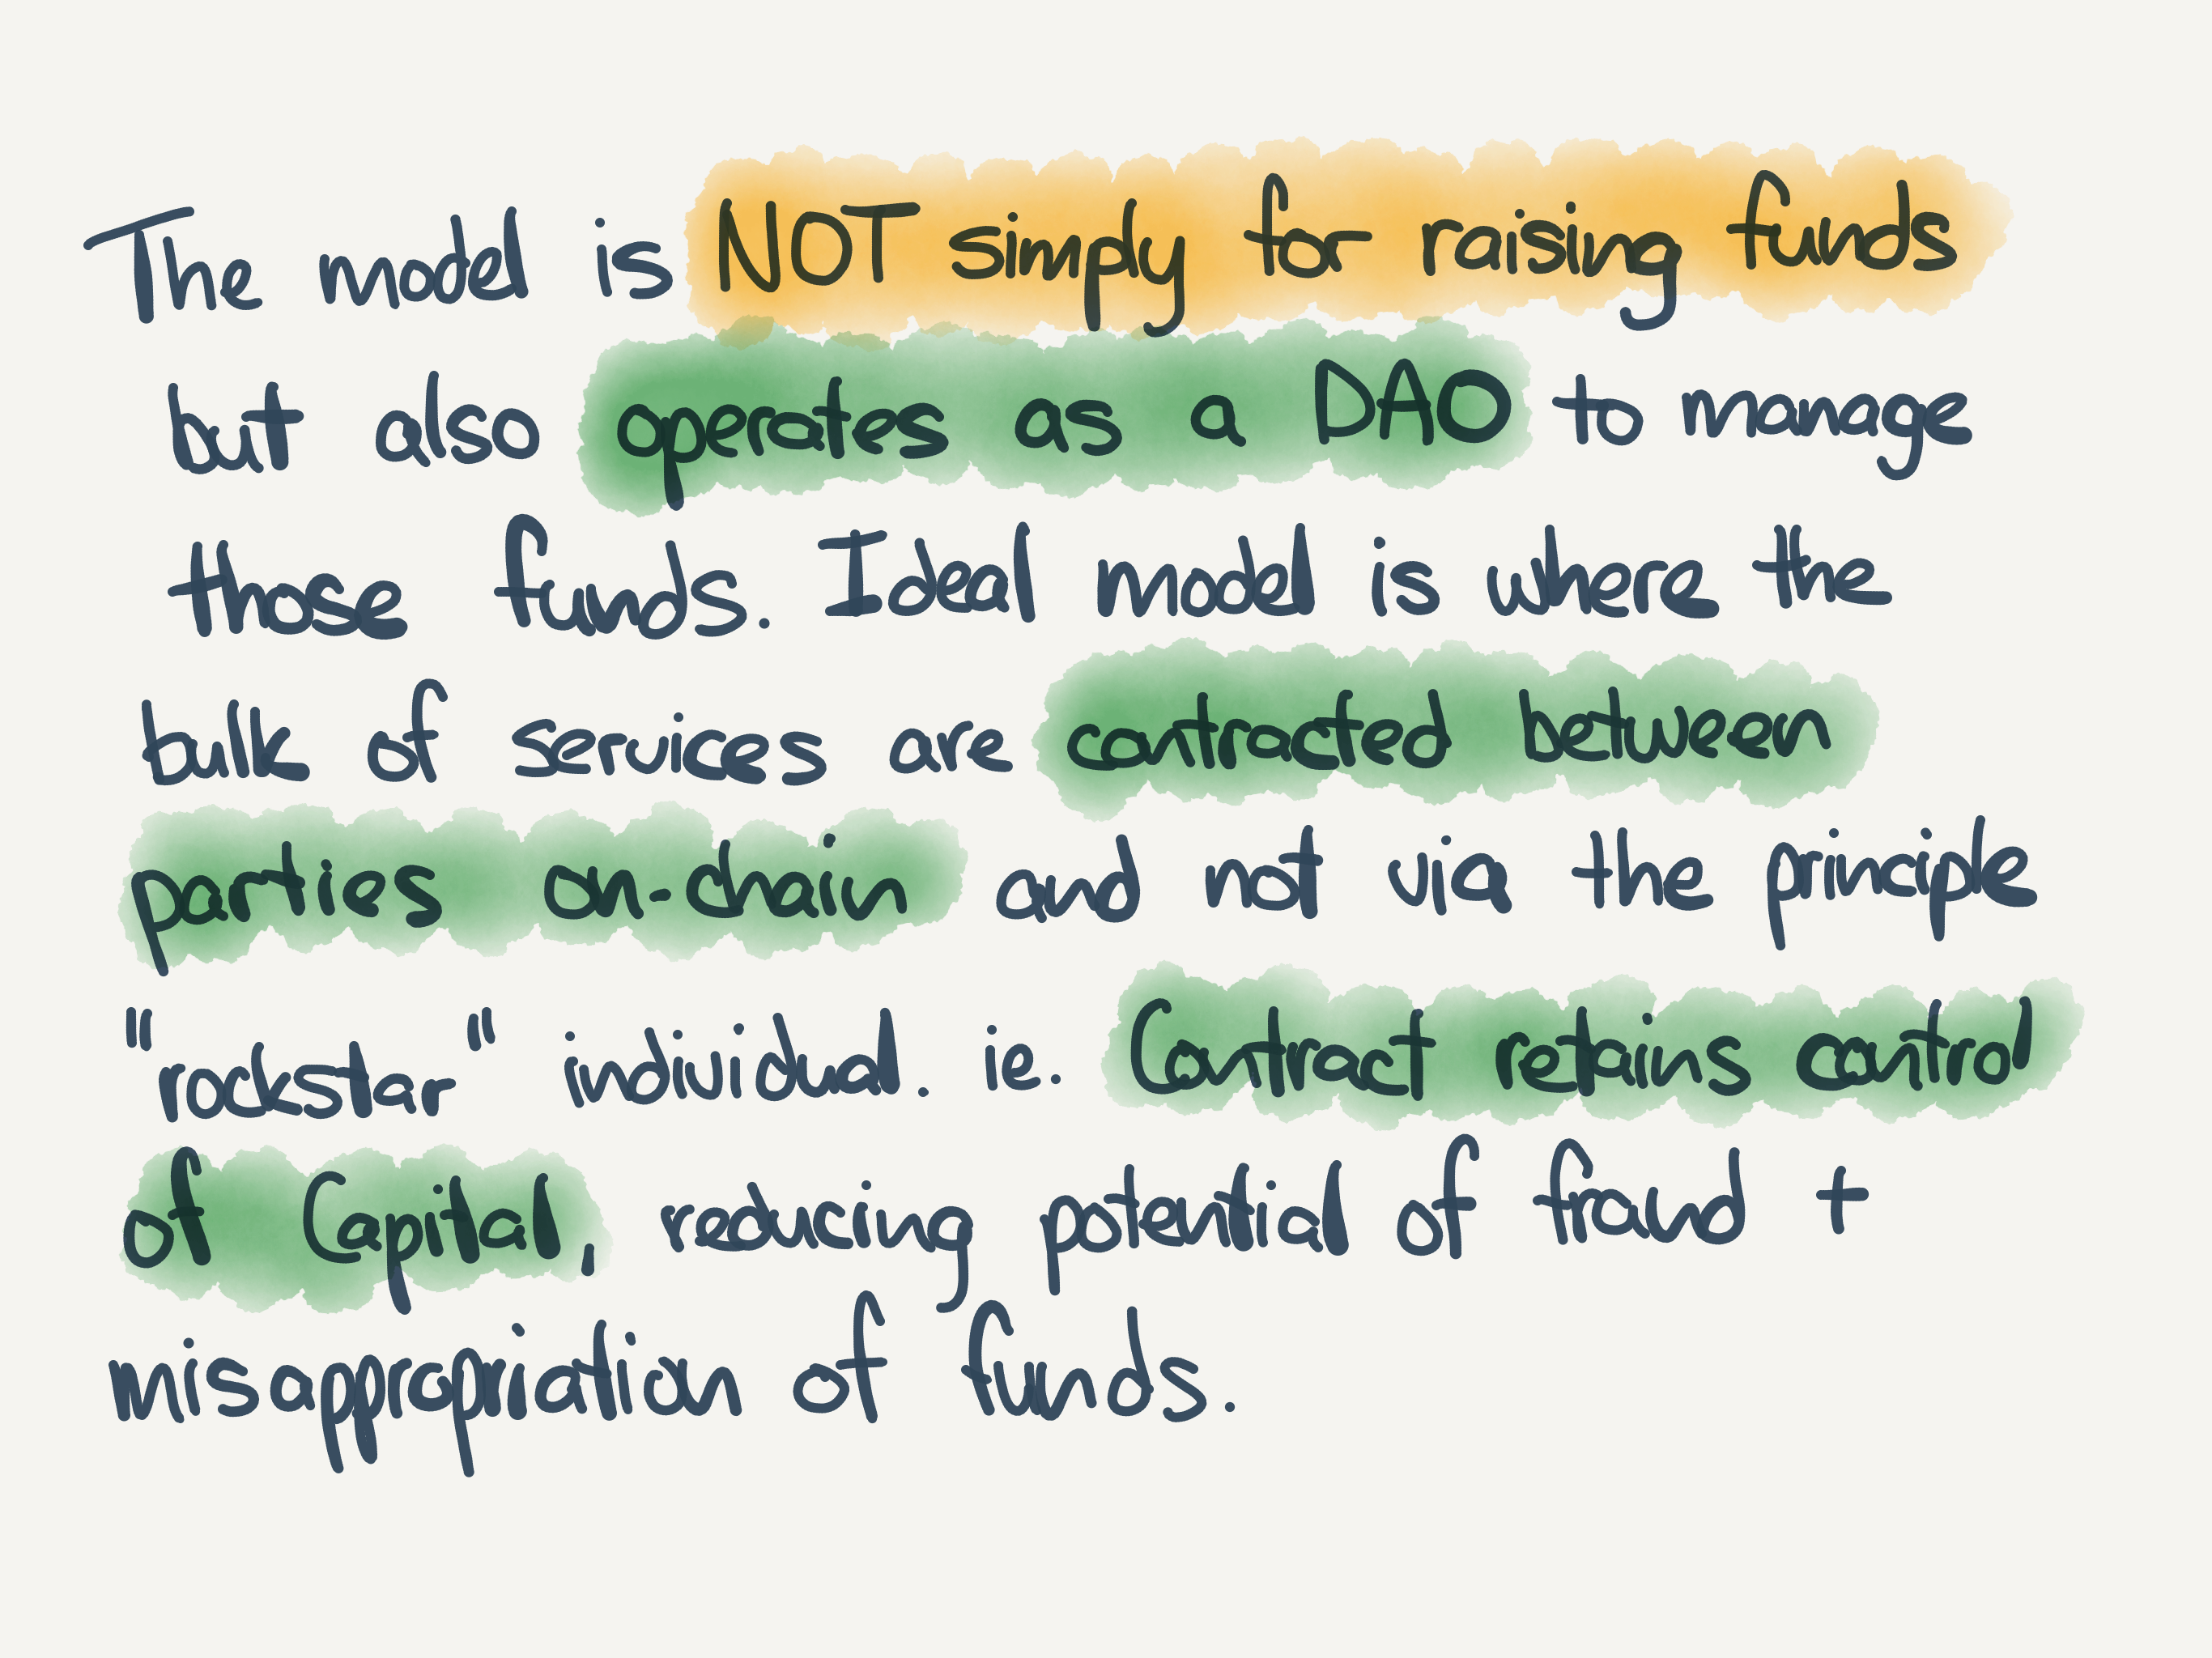 The model is NOT simply for raising funds
but also operates as a DAO to manage
those funds. Ideal model is where the
bulk of services are contracted between
parties on-chain and not via the principle
"rockstar" individual. ie. Contract retains control
of Capital, reducing potential of fraud +
misappropriation of funds.